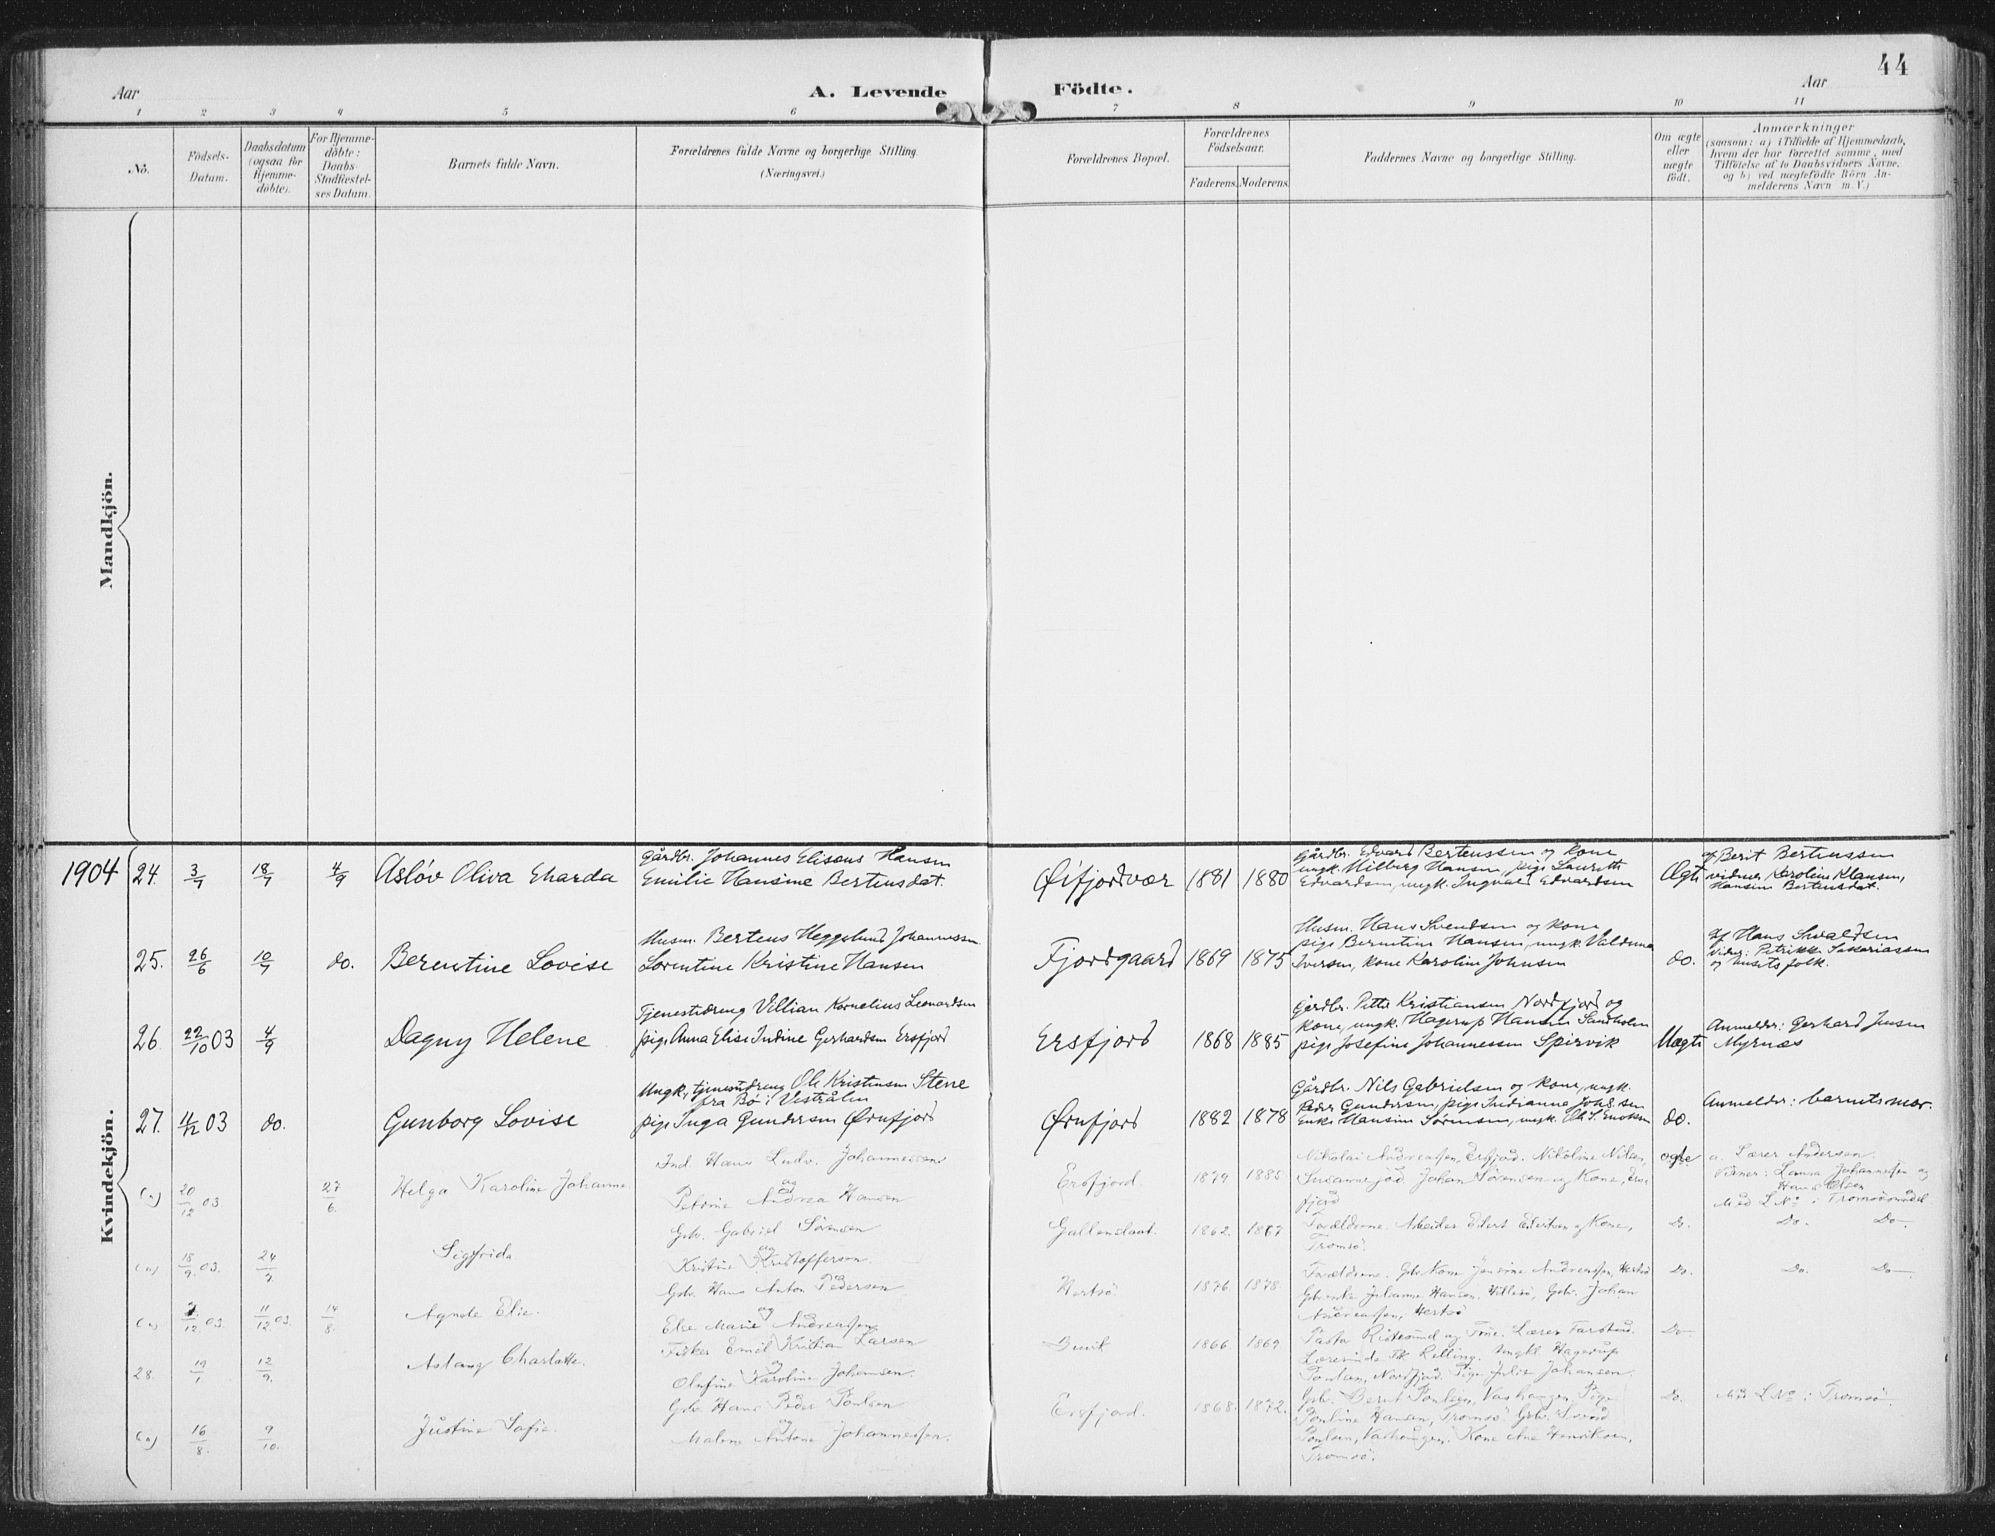 44
Aar
A. Levende Födte.
Aar
1 2 3 4 5 6 7 8 9 10 11
No.
Födsels-Datum.
Daabsdatum (ogsaa for Hjemme-döbte).
For Hjemme-döbte: Daabs Stadfæstel-ses Datum.
Barnets fulde Navn.
Forældrenes fulde Navne og borgerlige Stilling.
(Næringsvei.)
Forældrenes Bopæl.
Forældrenes Födselsaar.
Faderens. Moderens.
Faddernes Navne og borgerlige Stilling.
Om ægte eller uægte födt.
Anmærkninger
(saasom: a) i Tilfælde af Hjemmedaab,
hvem der har forrettet samme, med
Tilföielse af to Daabsvidners Navne,
og b) ved uægtefödte Börn An-
melderens Navn m. V.)
Mandkjön.
Kvindekjön.
1904 24. 3/7 18/7 4/9 Asløv Oliva Eharda
Gårdbr. Johannes Eliseus Hansen
Emilie Hansine Bertensdat.
Øifjordvær 1881 1880
Gårdbr. Edvard Bertenssen og kone
ungk. Hilberg Hansen, pige Lauritte
Edvardsen, ungk. Ingvald Edvardsen
Ægte
af Berit Bertenssen
vidner Karoline Klausen,
Hansine Bertensdat.
25. 26/6 10/7 do. Berentine Lovise
Husm. Bertens Heggelund Johannessen
Lorentine Kristine Hansen
Fjordgaard 1869 1875
Husm. Hans Svendsen og kone
pige Berntine Hansen, ungk. Valdemar
Iversen, kone Karoline Johnsen
do.
af Hans
vidner: Petrikke Sakariassen
og husets folk.
26. 22/10 03 4/9 Dagny Helene
Tjenestedreng Villian Kornelius Leonardsen
pige Anna Elise Indine Gerhardsen Ersfjord
Ersfjord 1868 1885
Gårdbr. Petter Kristiansen Nordfjord og
kone, ungk. Hagerup Hansen Sandholm
pige Josefine Johannessen Spirvik
Uægte
Anmelder: Gerhard Jensen
Myrnæs
27. 4/12 03 do. Gunborg Lovise
Ungk., tjenestdreng Ole Kristensen Steve
fra Bø i Vestrålen
pige Inga Gundersen Ørnfjord
Ørnfjord 1882 1878
Gårdbr. Nils Gabrielsen og kone, ungk.
Peder Gundersen, pige Indianna Johansen
Enke Hansine Sørensen, ungk. Ole S. Enoksen
do.
Anmelder: barnets mor.
(n) 20/12 03. 27/6. Helga Karoline Johanne
Ind. Hans Ludv. Johannessen
og
Petrine Andrea Hansen
Ersfjord. 1879 1885
Nikolai Andreassen, Ersfjord. Nikoline Nilsen,
Susannejord Johan Sørensen og Kone, Ers-
fjord
ægte
a. Lærer Andersen.
Vidner: Laura Johannesen og
Hans Olsen
Med L No i Tromsösundet
(n) 15/9. 03. 24/7 Sigfrida
Gbr. Gabriel Sørensen
og
Kristine Kristoffersen.
1862. 1867
Forældrene. Arbeider Edert Edertsen og Kone,
Tromsö.
Do. Do. Do—
(n) 7/12 03. 11/12 03. 14/8. Agnde Elie.
Gbr. Hans Anton Pedersen
og
Else Marie Andreassen.
Hertsö 1876 1878
Forældrene. Gbr. Kone Jensine Andreassen, Hertsö
Gbrenke Johanne Hansen, Hillesö, Gbr. Johan
Andreassen, Hertsö
Do. Do. Do—
28. 19/1 12/9. Aslaug Charlotte.
Fisker Emil Kristian Larsen
og
Olufine Karoline Johansen.
1866. 1869
Lærerinde Fk. Relling. Ungkl. Hagerup
Poulsen, Nordfjord. Pige Julie Johansen.
Do—
(n) 16/8. 9/10. Justine Sofie.
Gbr. Hans Peder Poulsen
og
Malene Antone Johannessen.
Ersfjord. 1868. 1872.
Gbr. Bernt Poulsen, Vashaugen, Pige
Pouline Hansen, Tromsö Gbr.
Poulsen, Vashaugen. Kone Ane Henriksen,
Tromsö.
Do. Med L No i Tromsö.